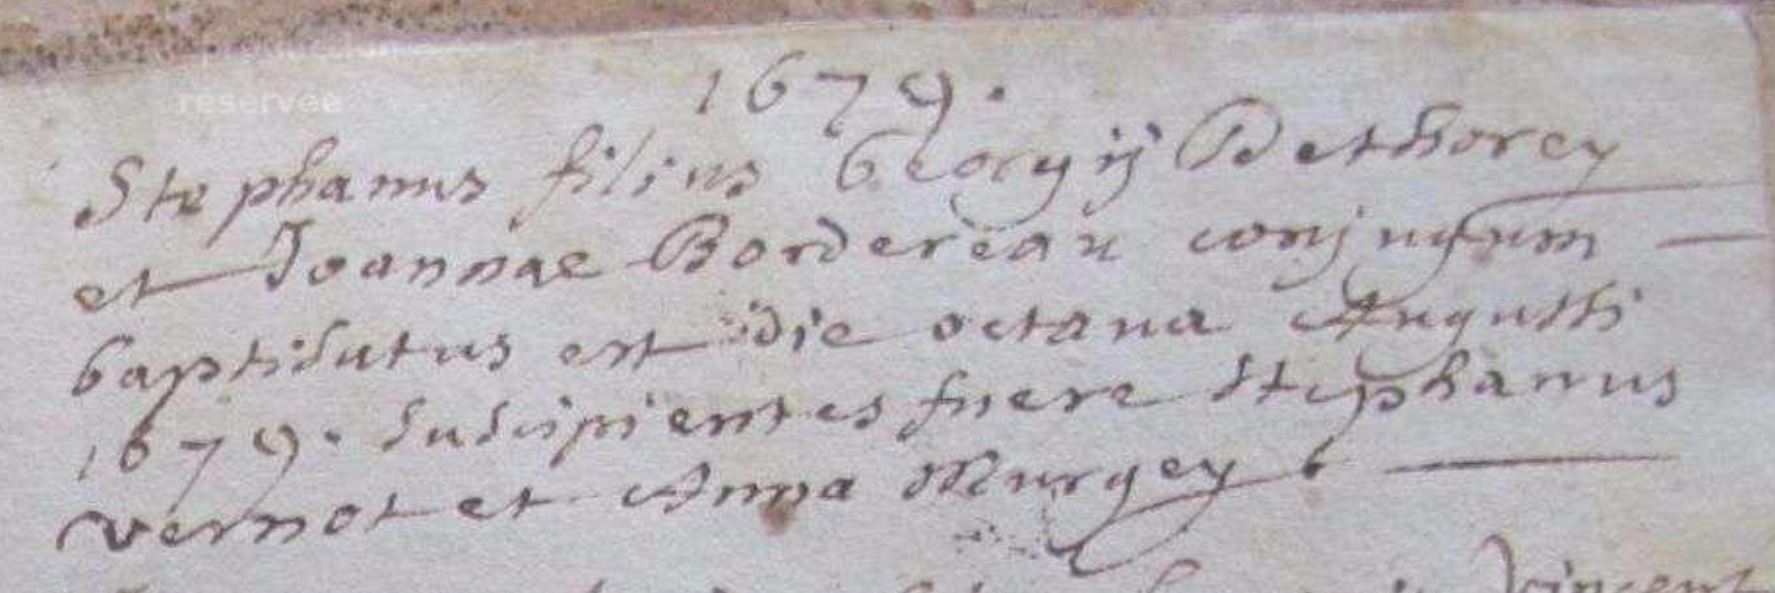 reservee
1679.
Stephanus filius Georgij Dethorey
et Joannae Bordereau conjugum
baptisatus est die octaua Augusti
1679. Suscipientes fuere Stephanus
vernot et Anna Murgey
vincent